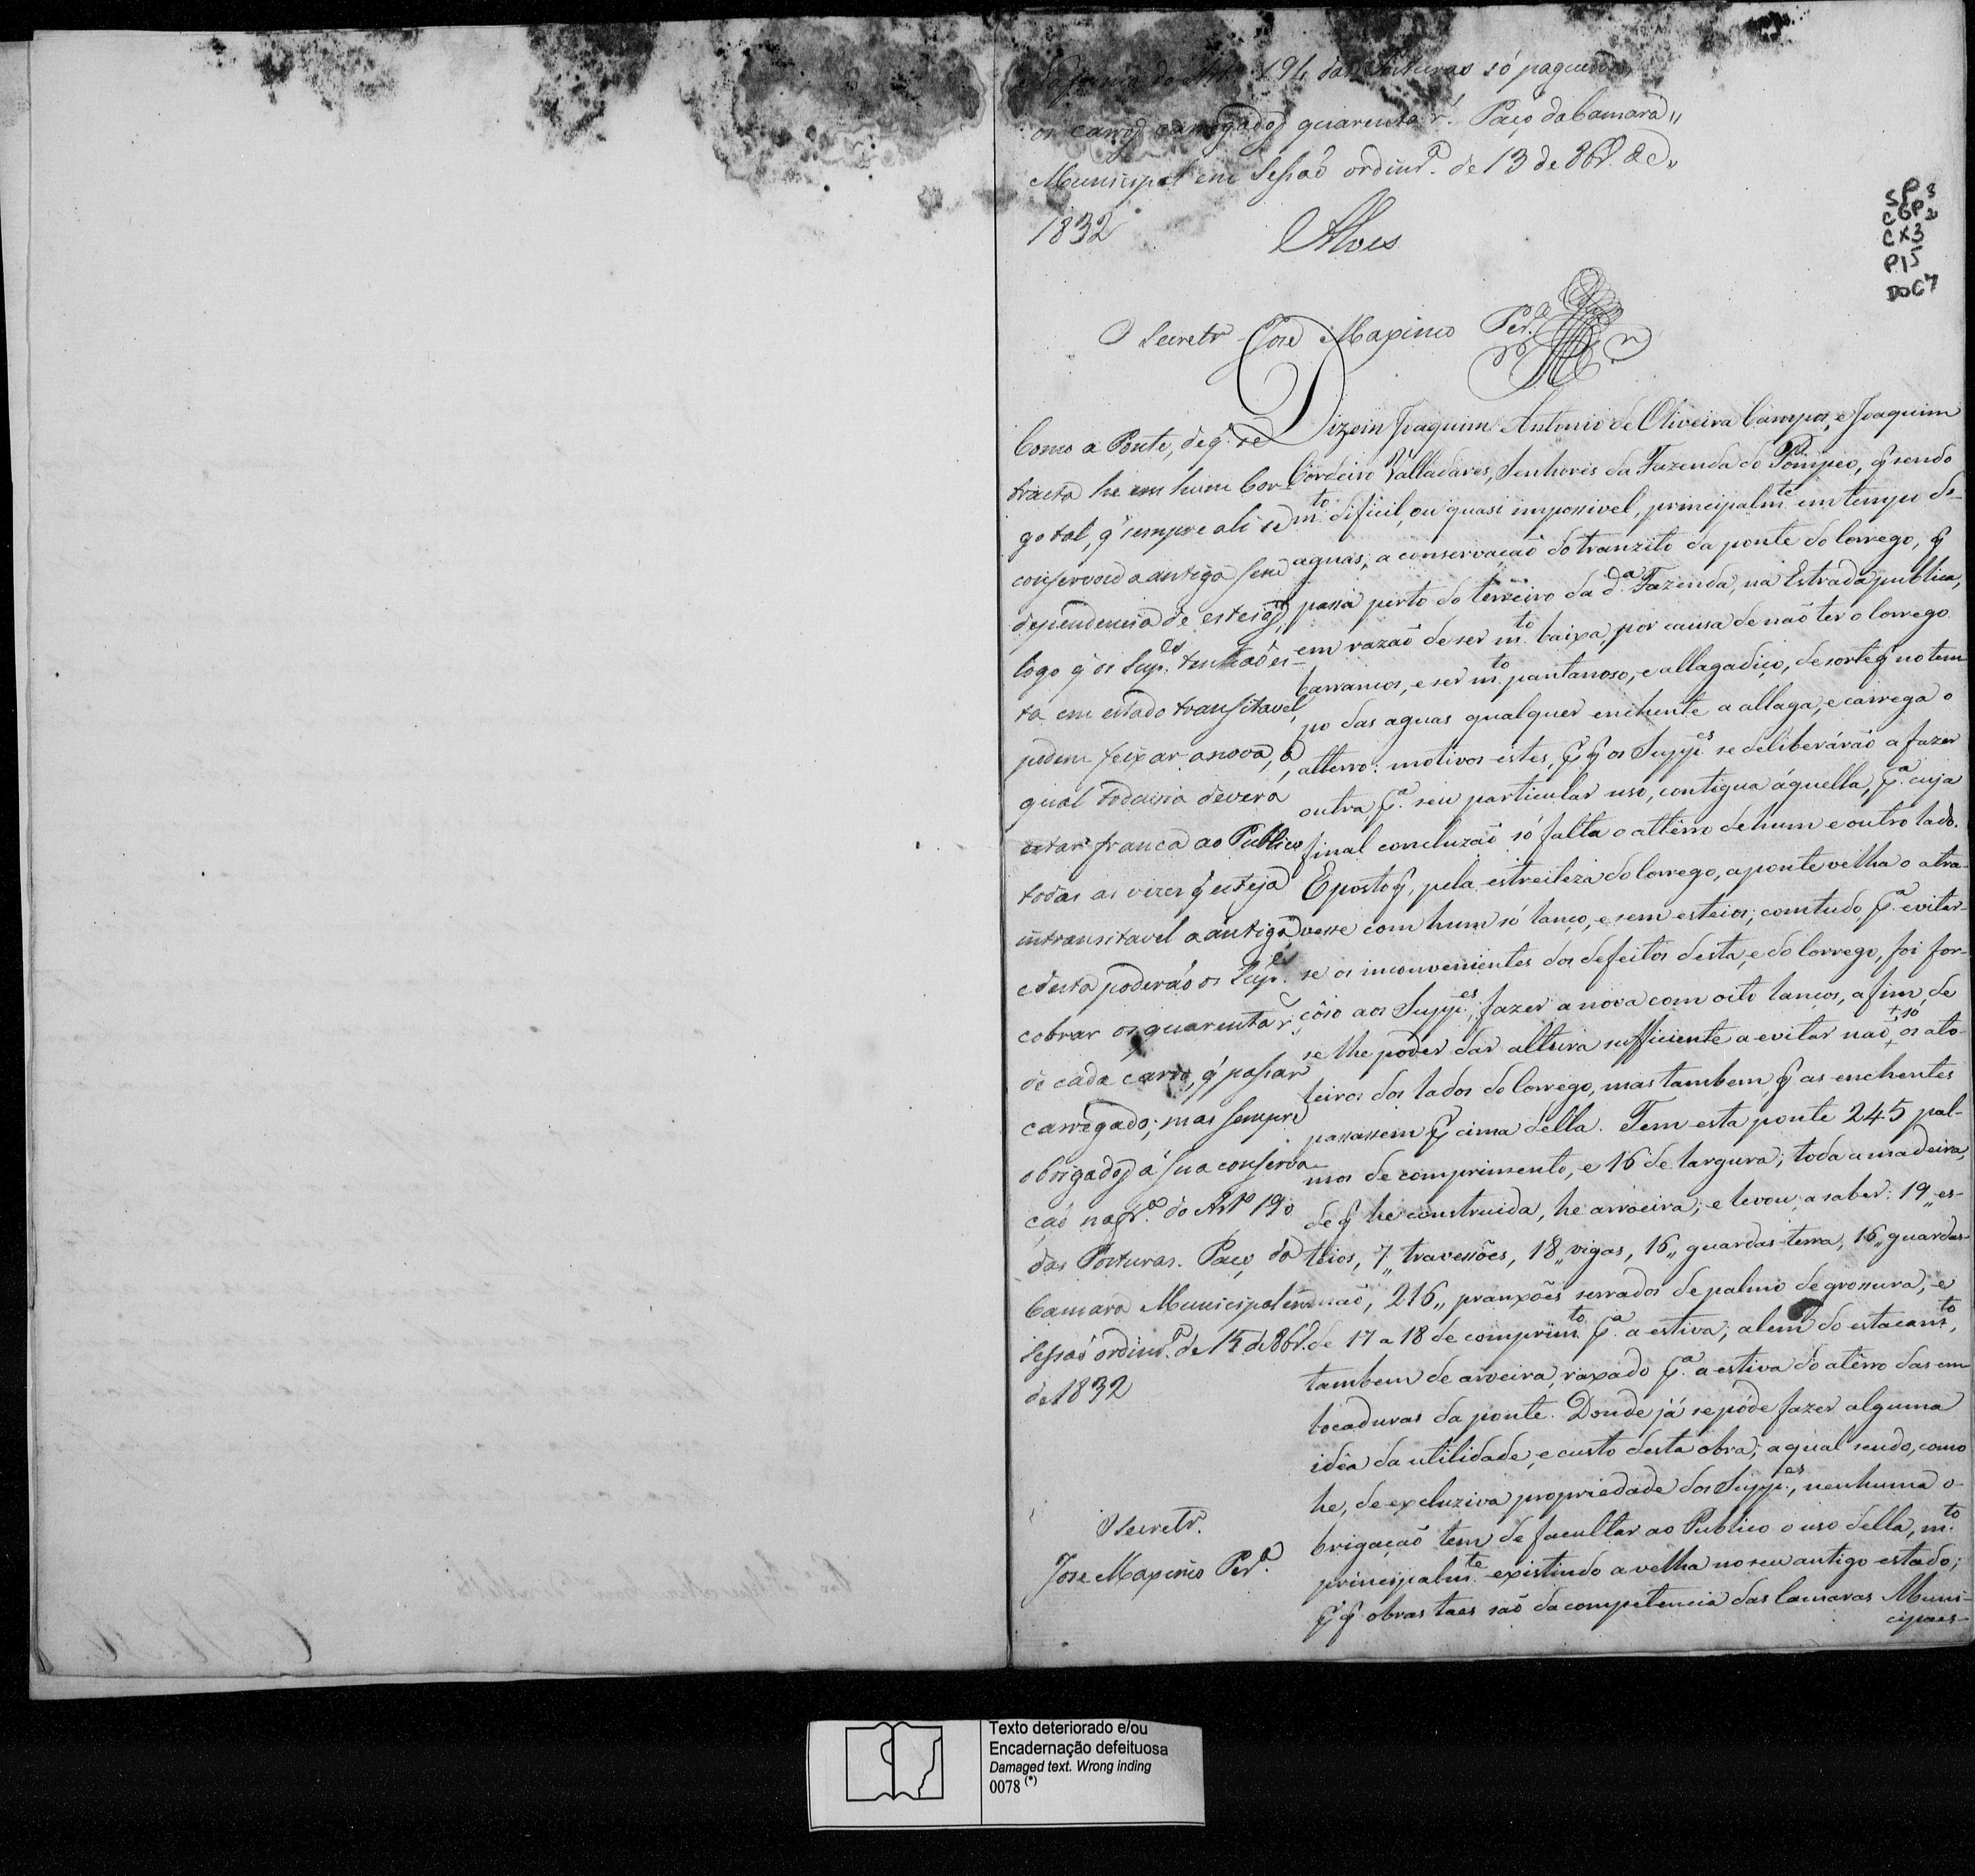 Na forma do Art. 194 das Posturas só paguem
os carros carregados quarenta r.s Paço da Camara
Municipal em Sessaõ ordinr.a de 13 de 8br.o de
1832
Alves
O Secretr.o Jose Maximo Per.a
SP 8
CGP 2
CX3
P15
DOC7
Como a Ponte, de q. se
tracta he em hum Cor-
go tal, q' sempre ali se
conservou a antiga sem
dependencia de esteios,
logo q' os Sup.es tenhaõ es-
ta em estado transitavel,
podem feixar a nova, a
qual todavia devera
estar franca ao Publico
todas as vezes q' esteja
intransitavel a antiga,
e desta poderáõ os Sup.es
cobrar os quarenta r.s
de cada carro, q' passar
carregado; mas sempre
obrigados á sua conserva-
çaõ na fr.a do Art.o 190
das Posturas. Paço da
Camara Municipal em
Sessaõ ordinr.a de 15 de 8br.o
de 1832
O Secretr.o
Jose Maximo Per.a
Dizem Joaquim Antonio de Oliveira Campos, e Joaquim
Cordeiro Valladares, Senhores da Fazenda do Pompeo, q sendo
m.to dificil, ou quasi impossivel, principalm.te em tempo de
aguas, a conservaçaõ do tranzito da ponte do Corrego, q
passa perto do terreiro da d.a Fazenda, na Estrada publica,
em razaõ de ser m.to baixa, por causa de naõ ter o Corrego
barrancos, e ser m.to pantanoso, e allagadiço, de sorte q no tem-
po das aguas qualquer enchente a allaga, e carrega o
atterro: motivos estes, p q os Supp.es se deliberáraõ a fazer
outra, p.a seu particular uso, contigua áquella, p.a cuja
final concluzaõ só falta o attêrro de hum e outro lado.
E posto q, pela estreiteza do Corrego, a ponte velha o atra-
vesse com hum só lanço, e sem esteios; comtudo, p.a evitar-
se os inconvenientes dos defeitos desta, e do Corrego, foi for-
çôso aos Supp.es, fazer a nova com oito lanços, a fim de
se lhe poder dar alttura sufficiente a evitar naõ + só os ato-
leiros dos lados do Corrego, mas tambem q as enchentes
passassem p cima della. Tem esta ponte 245 pal-
mos de comprimento, e 16 de largura; toda a madeira,
de q he construida, he arroeira; e levou, a saber: 19,, es-
teios, 7,, travessões, 18,, vigas, 16,, guardas-terra, 16,, guardas-
maõ, 216,, pranxões serrados de palmo de grossura, e
de 17 a 18 de comprim.to p.a a estiva; alem do estacam.to,
tambem de aroeira, raxado p.a a estiva do atêrro das em-
bocaduras da ponte. Donde já se póde fazer alguma
idêa da utilidade, e custo desta obra; a qual sendo, como
he, de excluziva propriedade dos Supp.es, nenhuma o-
brigaçaõ tem de facultar ao Publico o uso della, m.to
principalm.te existindo a velha no seu antigo estado;
p q obras taes saõ da competencia das Camaras Muni-
cipaes-
Texto deteriorado e/ou
Encadernação defeituosa
Damaged text. Wrong inding
0078 (*)